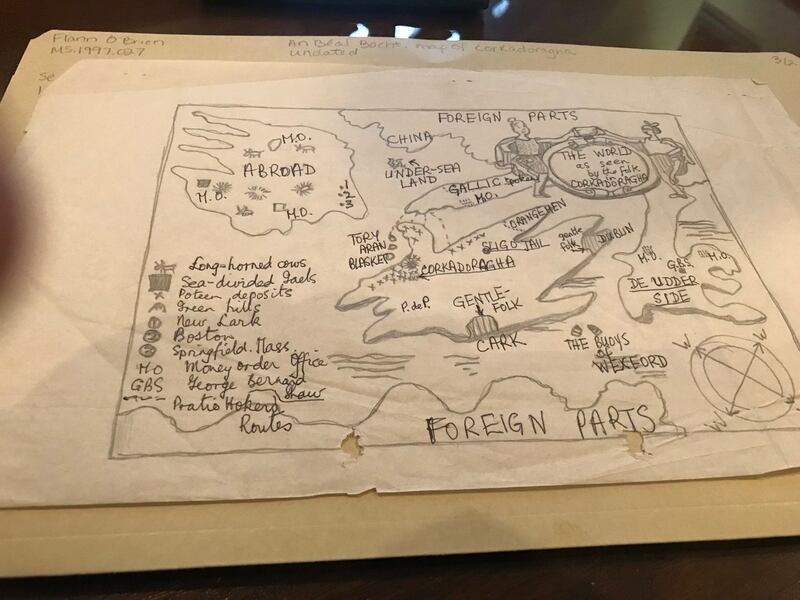 Flann O'Brien
MS.1997.027
An Béal Bocht. map of Corkadoragha
undated
3/2
Se
FOREIGN PARTS
M.O.
ABROAD
M.O.
M.O.
1
2
3
CHINA
UNDER-SEA
LAND
GALLIC spoken
M.O.
THE WORLD
as seen
by the folk
in
CORKADORAGHA
ORANGEMEN
TORY
ARAN
BLASKET
SLIGO JAIL
gentle
folk
DUBLIN
CORKADORAGHA
P. de P.
GENTLE-
FOLK
CARK
M.O.
G.B.S.
M.O.
DE UDDER
SIDE
THE BUOYS
of
WEXFORD
Long-horned cows
Sea-divided Gaels
Poteen deposits
Green hills
1 New Lark
2 Boston
3 Springfield. Mass.
M.O Money Order Office
GBS George Bernard
Shaw
Pratie Hokers
Routes
W
W
W
W
FOREIGN PARTS